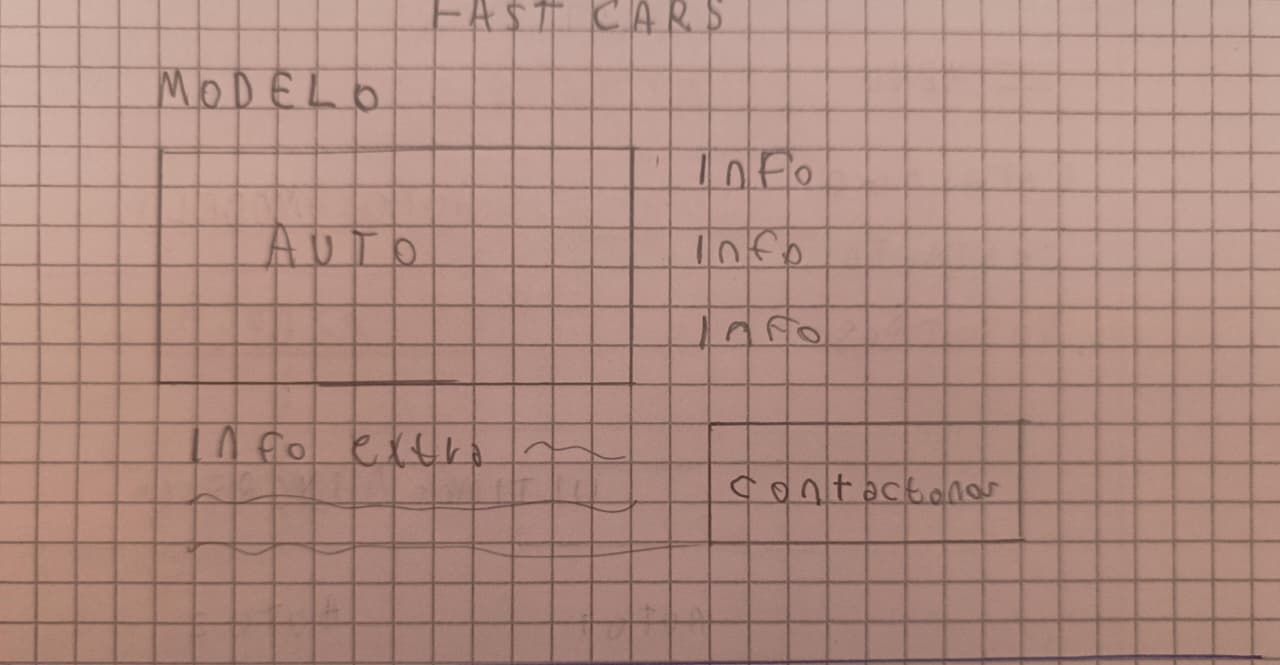 FAST CARS
MODELO
AUTO
Info
Info
Info
Info extra
contactanos